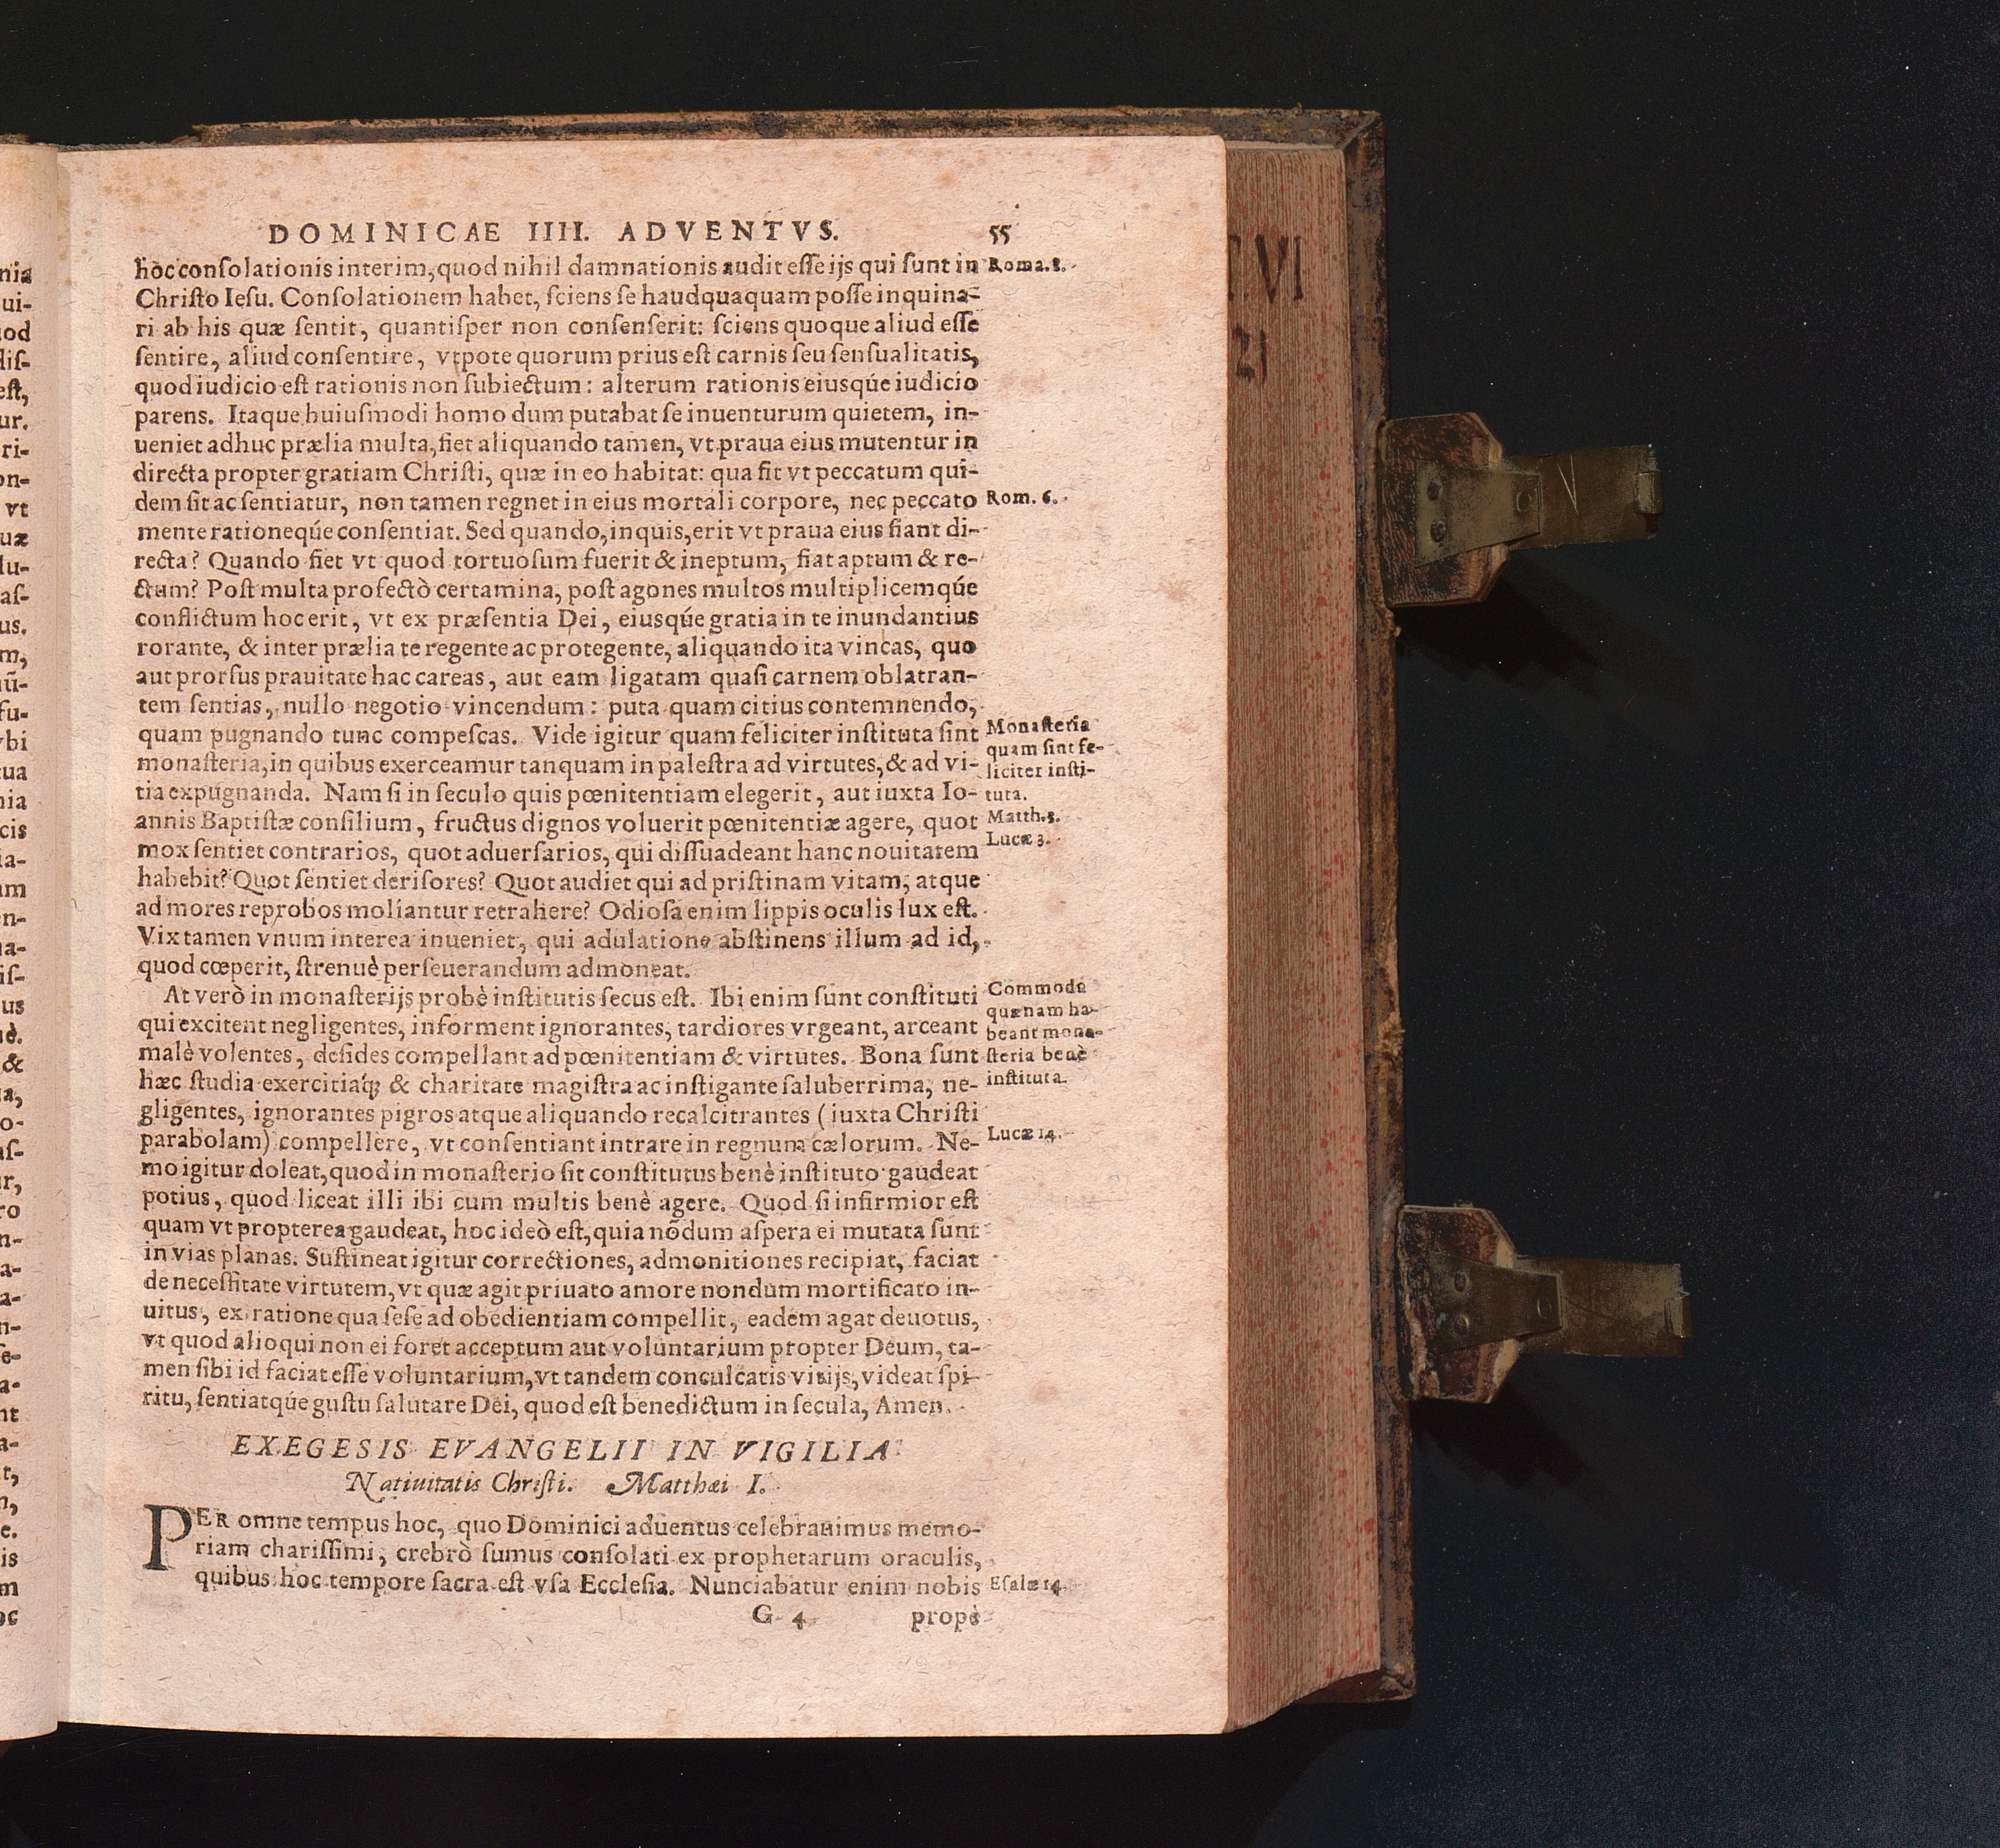 DOMINICAE IIII. ADVENTVS. 55
hoc conſolationis interim, quod nihil damnationis audit eſſe ijs qui ſunt in
Chriſto Ieſu. Conſolationem habet, ſciens ſe haudquaquam poſſe inquina-
ri ab his quæ ſentit, quantiſper non conſenſerit: ſciens quoque aliud eſſe
ſentire, aliud conſentire, vtpote quorum prius eſt carnis ſeu ſenſualitatis,
quod iudicio eſt rationis non ſubiectum: alterum rationis eiusqúe iudicio
parens. Itaque huiuſmodi homo dum putabat ſe inuenturum quietem, in-
ueniet adhuc prælia multa, fiet aliquando tamen, vt praua eius mutentur in
directa propter gratiam Chriſti, quæ in eo habitat: qua fit vt peccatum qui-
dem ſit ac ſentiatur, non tamen regnet in eius mortali corpore, nec peccato
mente rationeqúe conſentiat. Sed quando, inquis, erit vt praua eius fiant di-
recta? Quando fiet vt quod tortuoſum fuerit & ineptum, fiat aptum & re-
ctum? Poſt multa profectò certamina, poſt agones multos multiplicemqúe
conflictum hoc erit, vt ex præſentia Dei, eiusqúe gratia in te inundantius
rorante, & inter prælia te regente ac protegente, aliquando ita vincas, quo
aut prorſus prauitate hac careas, aut eam ligatam quaſi carnem oblatran-
tem ſentias, nullo negotio vincendum: puta quam citius contemnendo,
quam pugnando tunc compeſcas. Vide igitur quam feliciter inſtituta ſint
monaſteria, in quibus exerceamur tanquam in palæſtra ad virtutes, & ad vi-
tia expugnanda. Nam ſi in ſeculo quis pœnitentiam elegerit, aut iuxta Io-
annis Baptiſtæ conſilium, fructus dignos voluerit pœnitentiæ agere, quot
mox ſentiet contrarios, quot aduerſarios, qui diſſuadeant hanc nouitatem
habebit? Quot ſentiet deriſores? Quot audiet qui ad priſtinam vitam, atque
ad mores reprobos moliantur retrahere? Odioſa enim lippis oculis lux eſt.
Vix tamen vnum interea inueniet, qui adulatione abſtinens illum ad id,
quod cœperit, ſtrenuè perſeuerandum admoneat.
At verò in monaſterijs probè inſtitutis ſecus eſt. Ibi enim ſunt conſtituti
qui excitent negligentes, informent ignorantes, tardiores vrgeant, arceant
malè volentes, deſides compellant ad pœnitentiam & virtutes. Bona ſunt
hæc ſtudia exercitiaq́; & charitate magiſtra ac inſtigante ſaluberrima, ne-
gligentes, ignorantes pigros atque aliquando recalcitrantes (iuxta Chriſti
parabolam) compellere, vt conſentiant intrare in regnum cælorum. Ne-
mo igitur doleat, quod in monaſterio ſit conſtitutus benè inſtituto gaudeat
potius, quod liceat illi ibi cum multis benè agere. Quod ſi infirmior eſt
quam vt propterea gaudeat, hoc ideò eſt, quia nõdum aſpera ei mutata ſunt
in vias planas. Suſtineat igitur correctiones, admonitiones recipiat, faciat
de neceſſitate virtutem, vt quæ agit priuato amore nondum mortificato in-
uitus, ex ratione qua ſeſe ad obedientiam compellit, eadem agat deuotus,
vt quod alioqui non ei foret acceptum aut voluntarium propter Deum, ta-
men ſibi id faciat eſſe voluntarium, vt tandem conculcatis vitijs, videat ſpi-
ritu, ſentiatqúe guſtu ſalutare Dei, quod eſt benedictum in ſecula, Amen.
EXEGESIS EVANGELII IN VIGILIA
Natiuitatis Chriſti. Matthæi I.
PER omne tempus hoc, quo Dominici aduentus celebrauimus memo-
riam chariſſimi, crebrò ſumus conſolati ex prophetarum oraculis,
quibus hoc tempore ſacra eſt vſa Eccleſia. Nunciabatur enim nobis
G 4 propè
Roma.8.
Rom. 6.
Monaſteria
quam ſint fe-
liciter inſti-
tuta.
Matth.3.
Lucæ 3.
Commoda
quænam ha-
beant mona-
ſteria benè
inſtituta.
Lucæ 14.
Eſaiæ 14